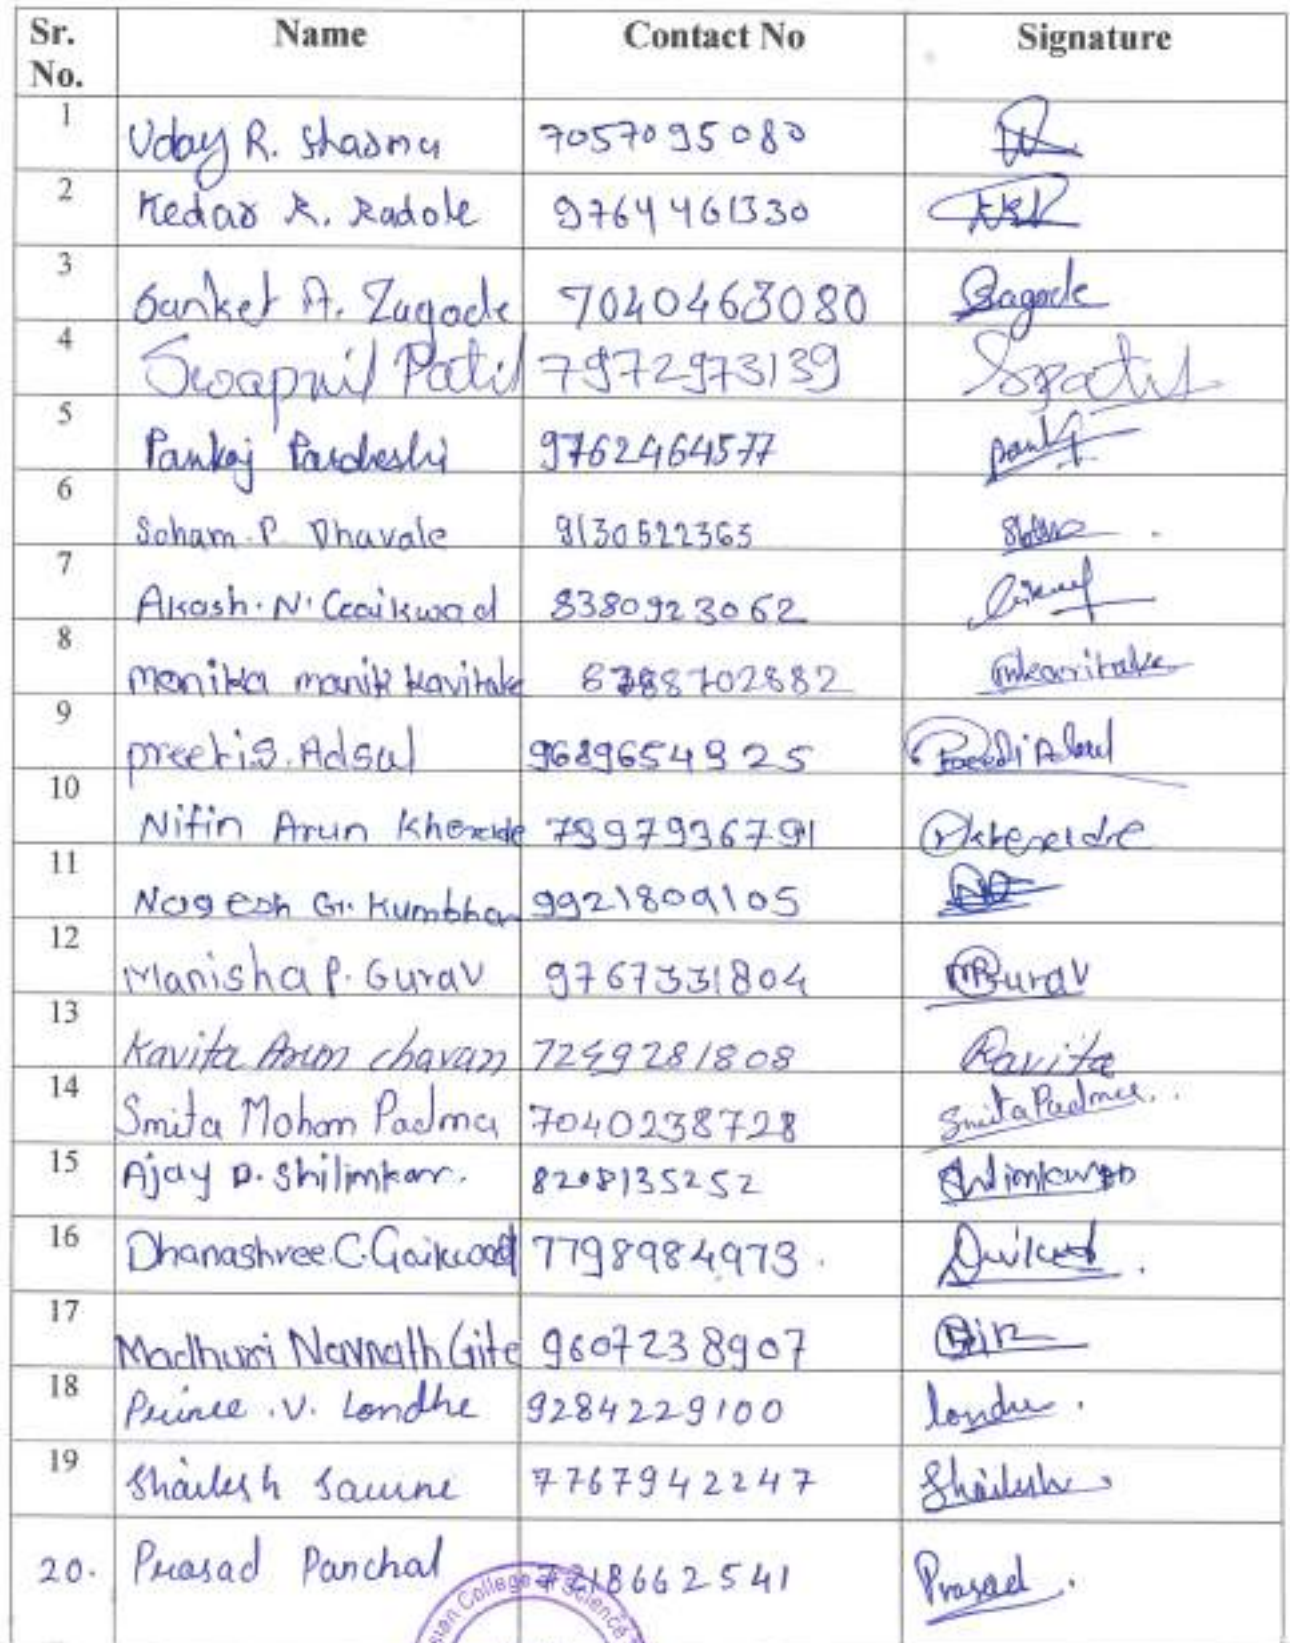 Sr. No. Name Contact No Signature
1 Uday R. Sharma 7057095080
2 Kedar R. Radole 9764461330
3 Sanket A. Zagode 7040463080 Zagode
4 Swapnil Patil 7972973139 Spatil
5 Pankaj Pardeshi 9762464577 Pankj
6 Soham. P. Dhavale 9130522365
7 Akash. N. Gaikwad 8380923062
8 monika manik kavitake 8702882 mkavitake
9 preeti.S. Adsul 9689654925 Preeti Adsul
10 Nitin Arun 7997936791
11 Nagesh G. Kumbhar 9921809105
12 Manisha P. Gurav 9767331804 MPGurav
13 Kavita Arun chavan 7249281808 Kavita
14 Smita Mohan Padma 7040238728 Smita Padma..
15 Ajay D. Shilimkar. 8208135252
16 Dhanashree.C.Gaikwad 7798984973.
17 Madhuri Navnath Gite 9607238907
18 Prince .V. Londhe 9284229100 londhe.
19 Shailesh 7767942247 Shailesh
20. Prasad Panchal 7218662541 Prasad.
College Science